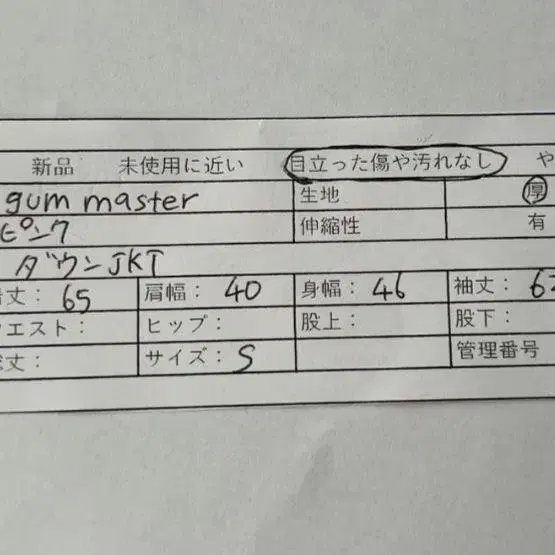 新品 未使用に近い 目立った傷や汚れなし や
gum master 生地 厚
ピンク 伸縮性 有
ダウンJKT
着丈： 65 肩幅： 40 身幅： 46 袖丈： 62
ウエスト： ヒップ： 股上： 股下：
総丈： サイズ： S 管理番号